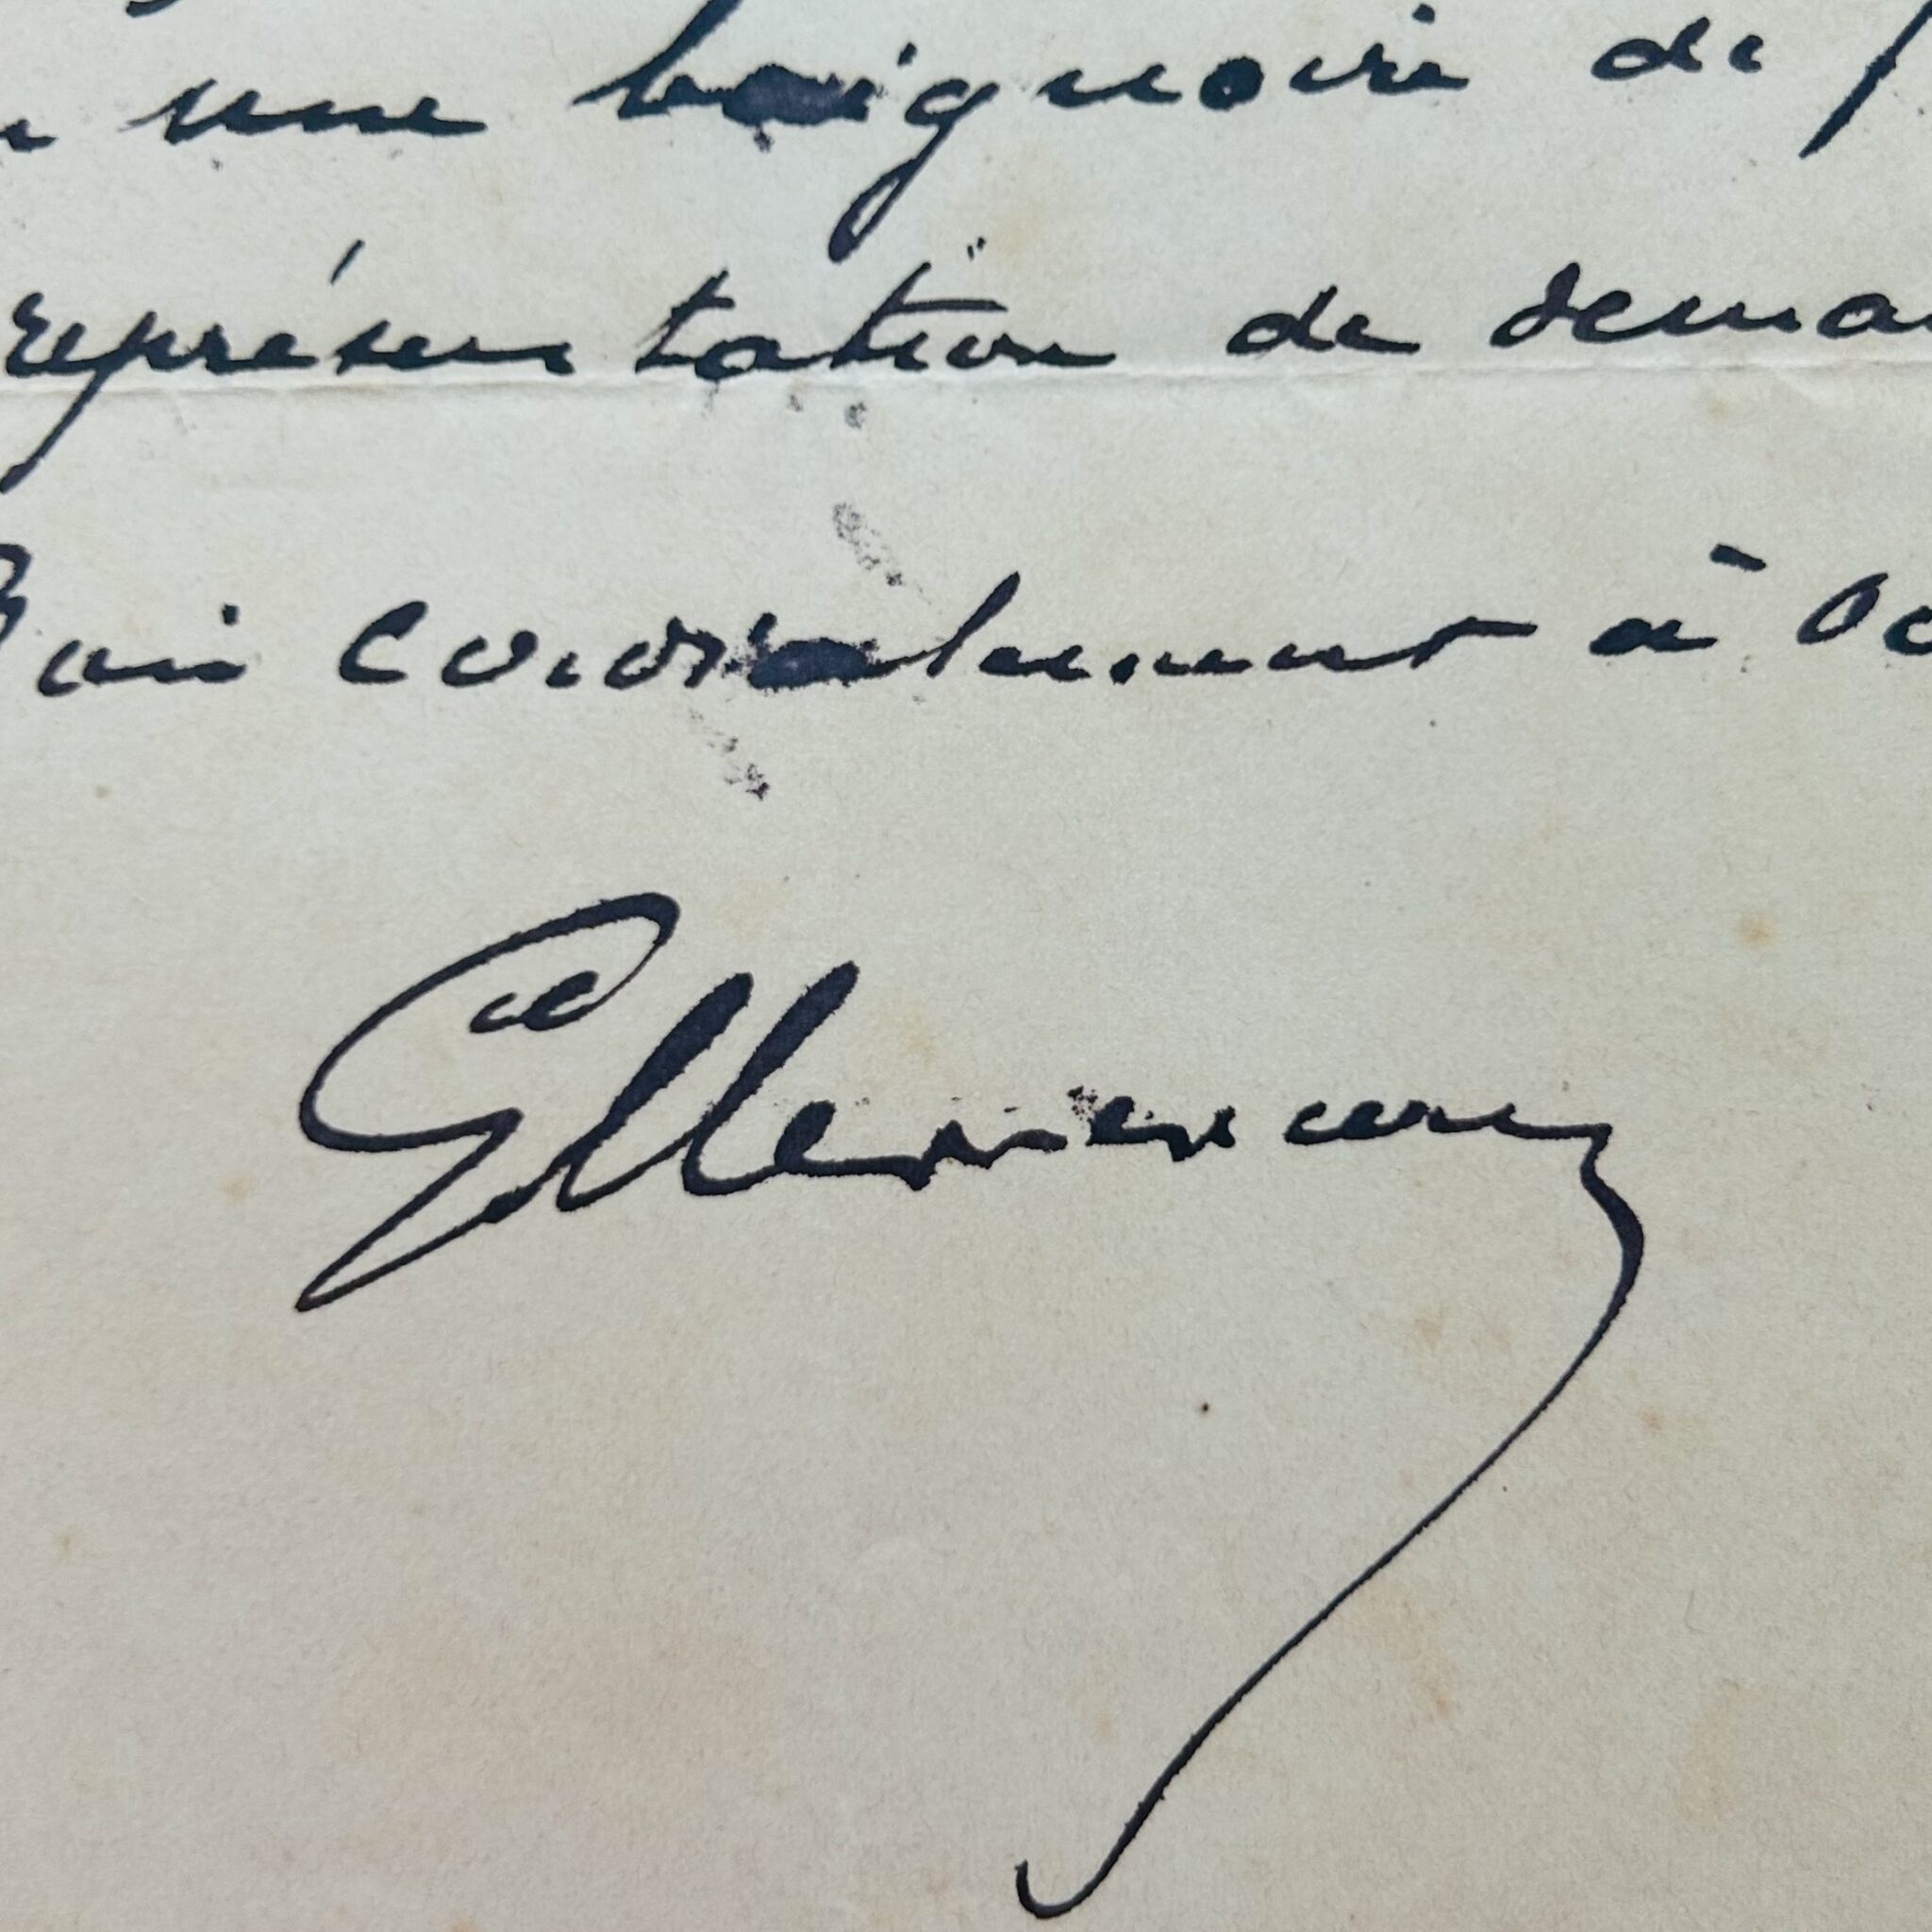 une baignoire de
représentation de demai
Bien cordialement à vo
GClemenceau